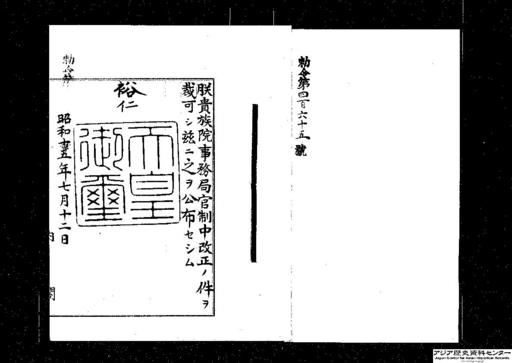 勅令第四百六十五號
朕貴族院事務局官制中改正ノ件ヲ
裁可シ茲ニ之ヲ公布セシム
裕仁
天皇
御璽
昭和十五年七月十二日
勅令第
内閣
アジア歴史資料センター
Japan Center for Asian Historical Records